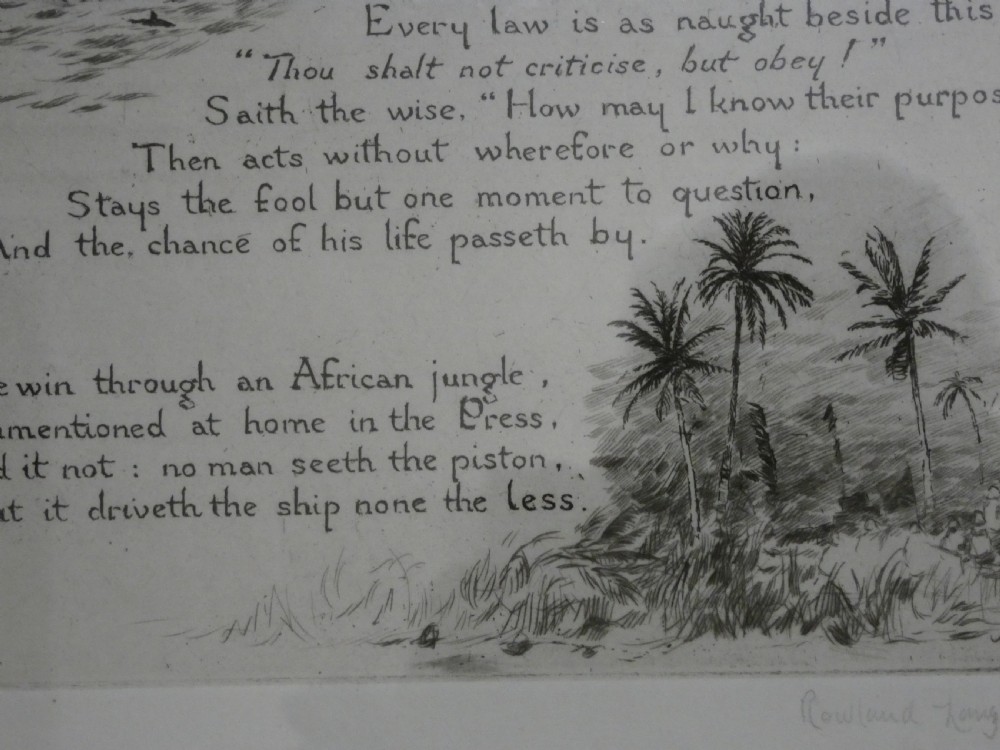 Every law is as naught beside this
"Thou shalt not criticise, but obey!"
Saith the wise, "How may I know their purpos
Then acts without wherefore or why:
Stays the fool but one moment to question,
And the chance of his life passeth by.
e win through an African jungle,
mentioned at home in the Press,
d it not: no man seeth the piston,
ut it driveth the ship none the less.
Rowland